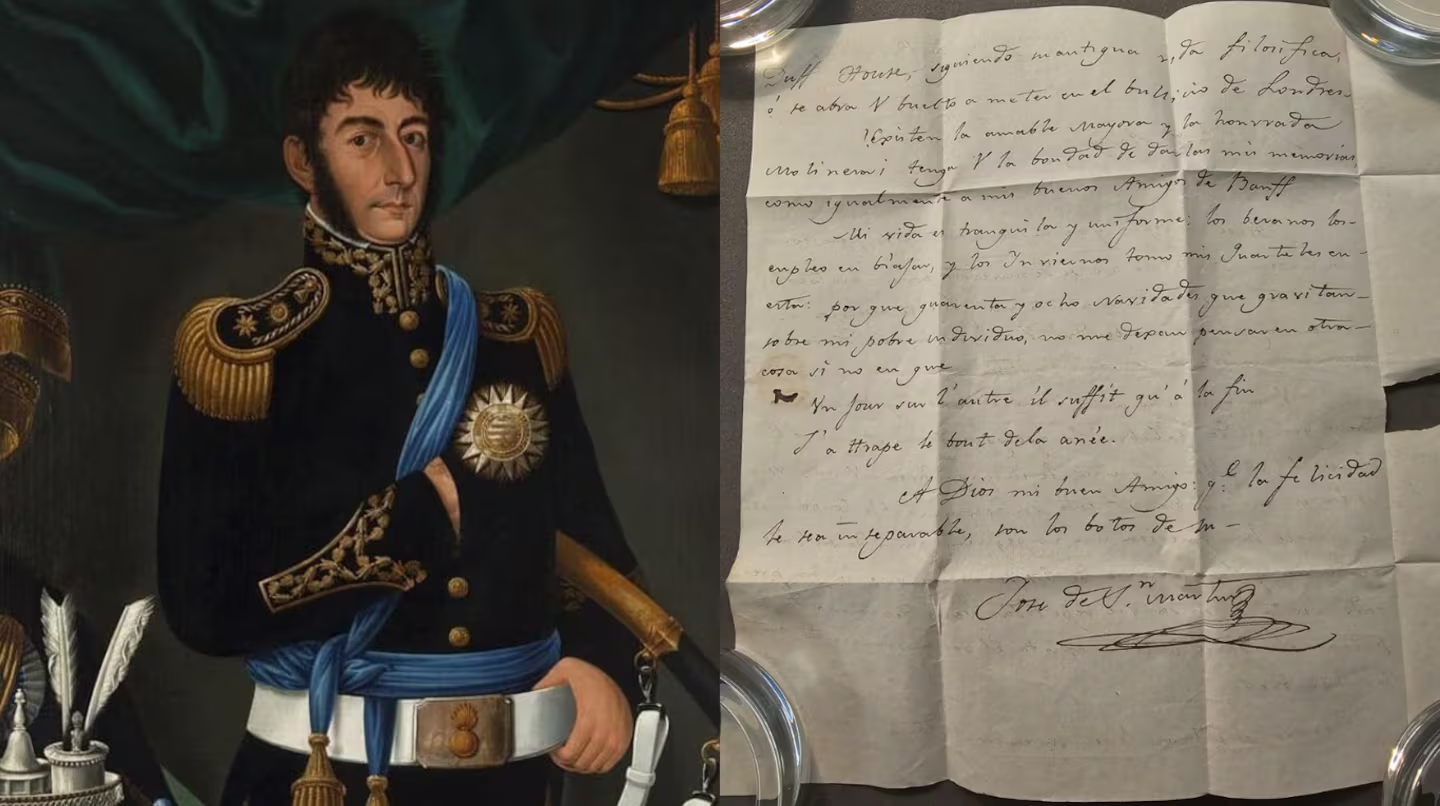 Duff House, siguiendo su antigua vida filosofica,
ó se abra V buelto a meter en el bullicio de Londres
!Existen la amable Mayora y la honrrada
Molinera¡ tenga V la bondad de darlas mis memorias
como igualmente a mis buenos Amigos de Banff
Mi vida es tranquila y uniforme: los beranos los-
enpleo en biajar, y los Inviernos tomo mis Quarteles en-
esta: por que quarenta y ocho Navidades que gravitan-
sobre mi pobre individuo, no me dexan pensar en otra-
cosa si no en que
Un Jour sur l'autre il suffit qu'á la fin
J'attrape le bout dela anée.
A Dios mi buen Amigo: q.e la felicidad
le sea inseparable, son los botos de su-
Jose de S.n Martin